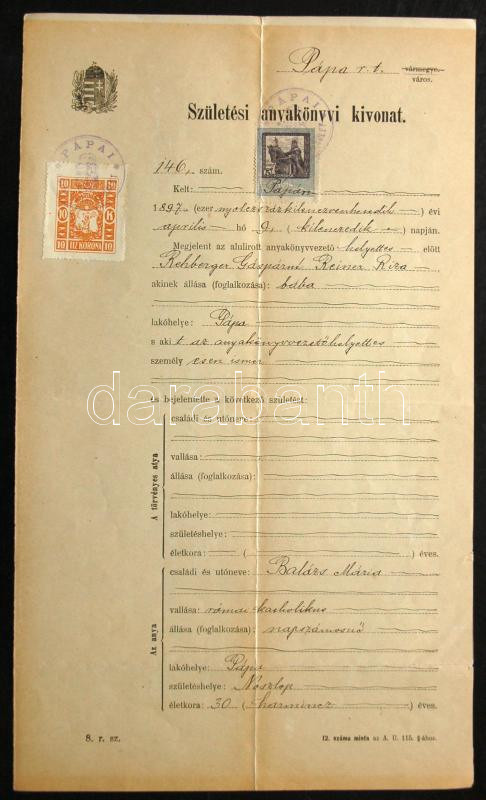 Pápa r. t. vármegye.
város.
Születési anyakönyvi kivonat.
PÁPAI
PÁPAI
146. szám.
Kelt: Pápán
10 10
10 K
10 TIZ KORONA 10
1897 (ezer nyolczszázkilenczvenhetedik) évi
április hó 9. (kilenczedik) napján.
Megjelent az alulirott anyakönyvvezető helyettes előtt
Rehberger Gáspárné Reiner Riza
akinek állása (foglalkozása): bába
lakóhelye: Pápa
s aki t az anyakönyvvezető helyettes
személy esen ismer
és bejelentette a következő születést:
A törvényes atya
családi és utóneve:
vallása:
állása (foglalkozása):
lakóhelye:
születéshelye:
életkora: ( ) éves.
Az anya
családi és utóneve: Balázs Mária
vallása: római katholikus
állása (foglalkozása): napszámosnő
lakóhelye: Pápa
születéshelye: Noszlop
életkora: 30 (harmincz) éves.
8. r. sz.
12. száma minta az A. U. 115. §-ához.
darabanth